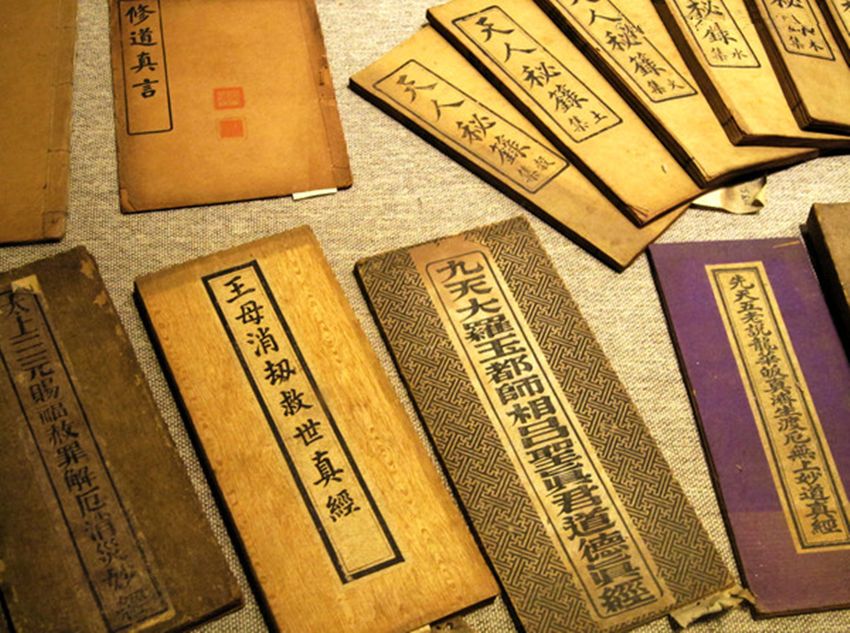 修道真言
天人秘錄 穀集
天人秘錄 土集
天人秘錄 火集
秘錄 水集
木集
太上三元賜福赦罪解厄消災妙經
王母消刼救世真經
九天大羅玉都師相呂聖眞君道德眞經
先天五老說龍華皈真濟生渡厄無上妙道真經